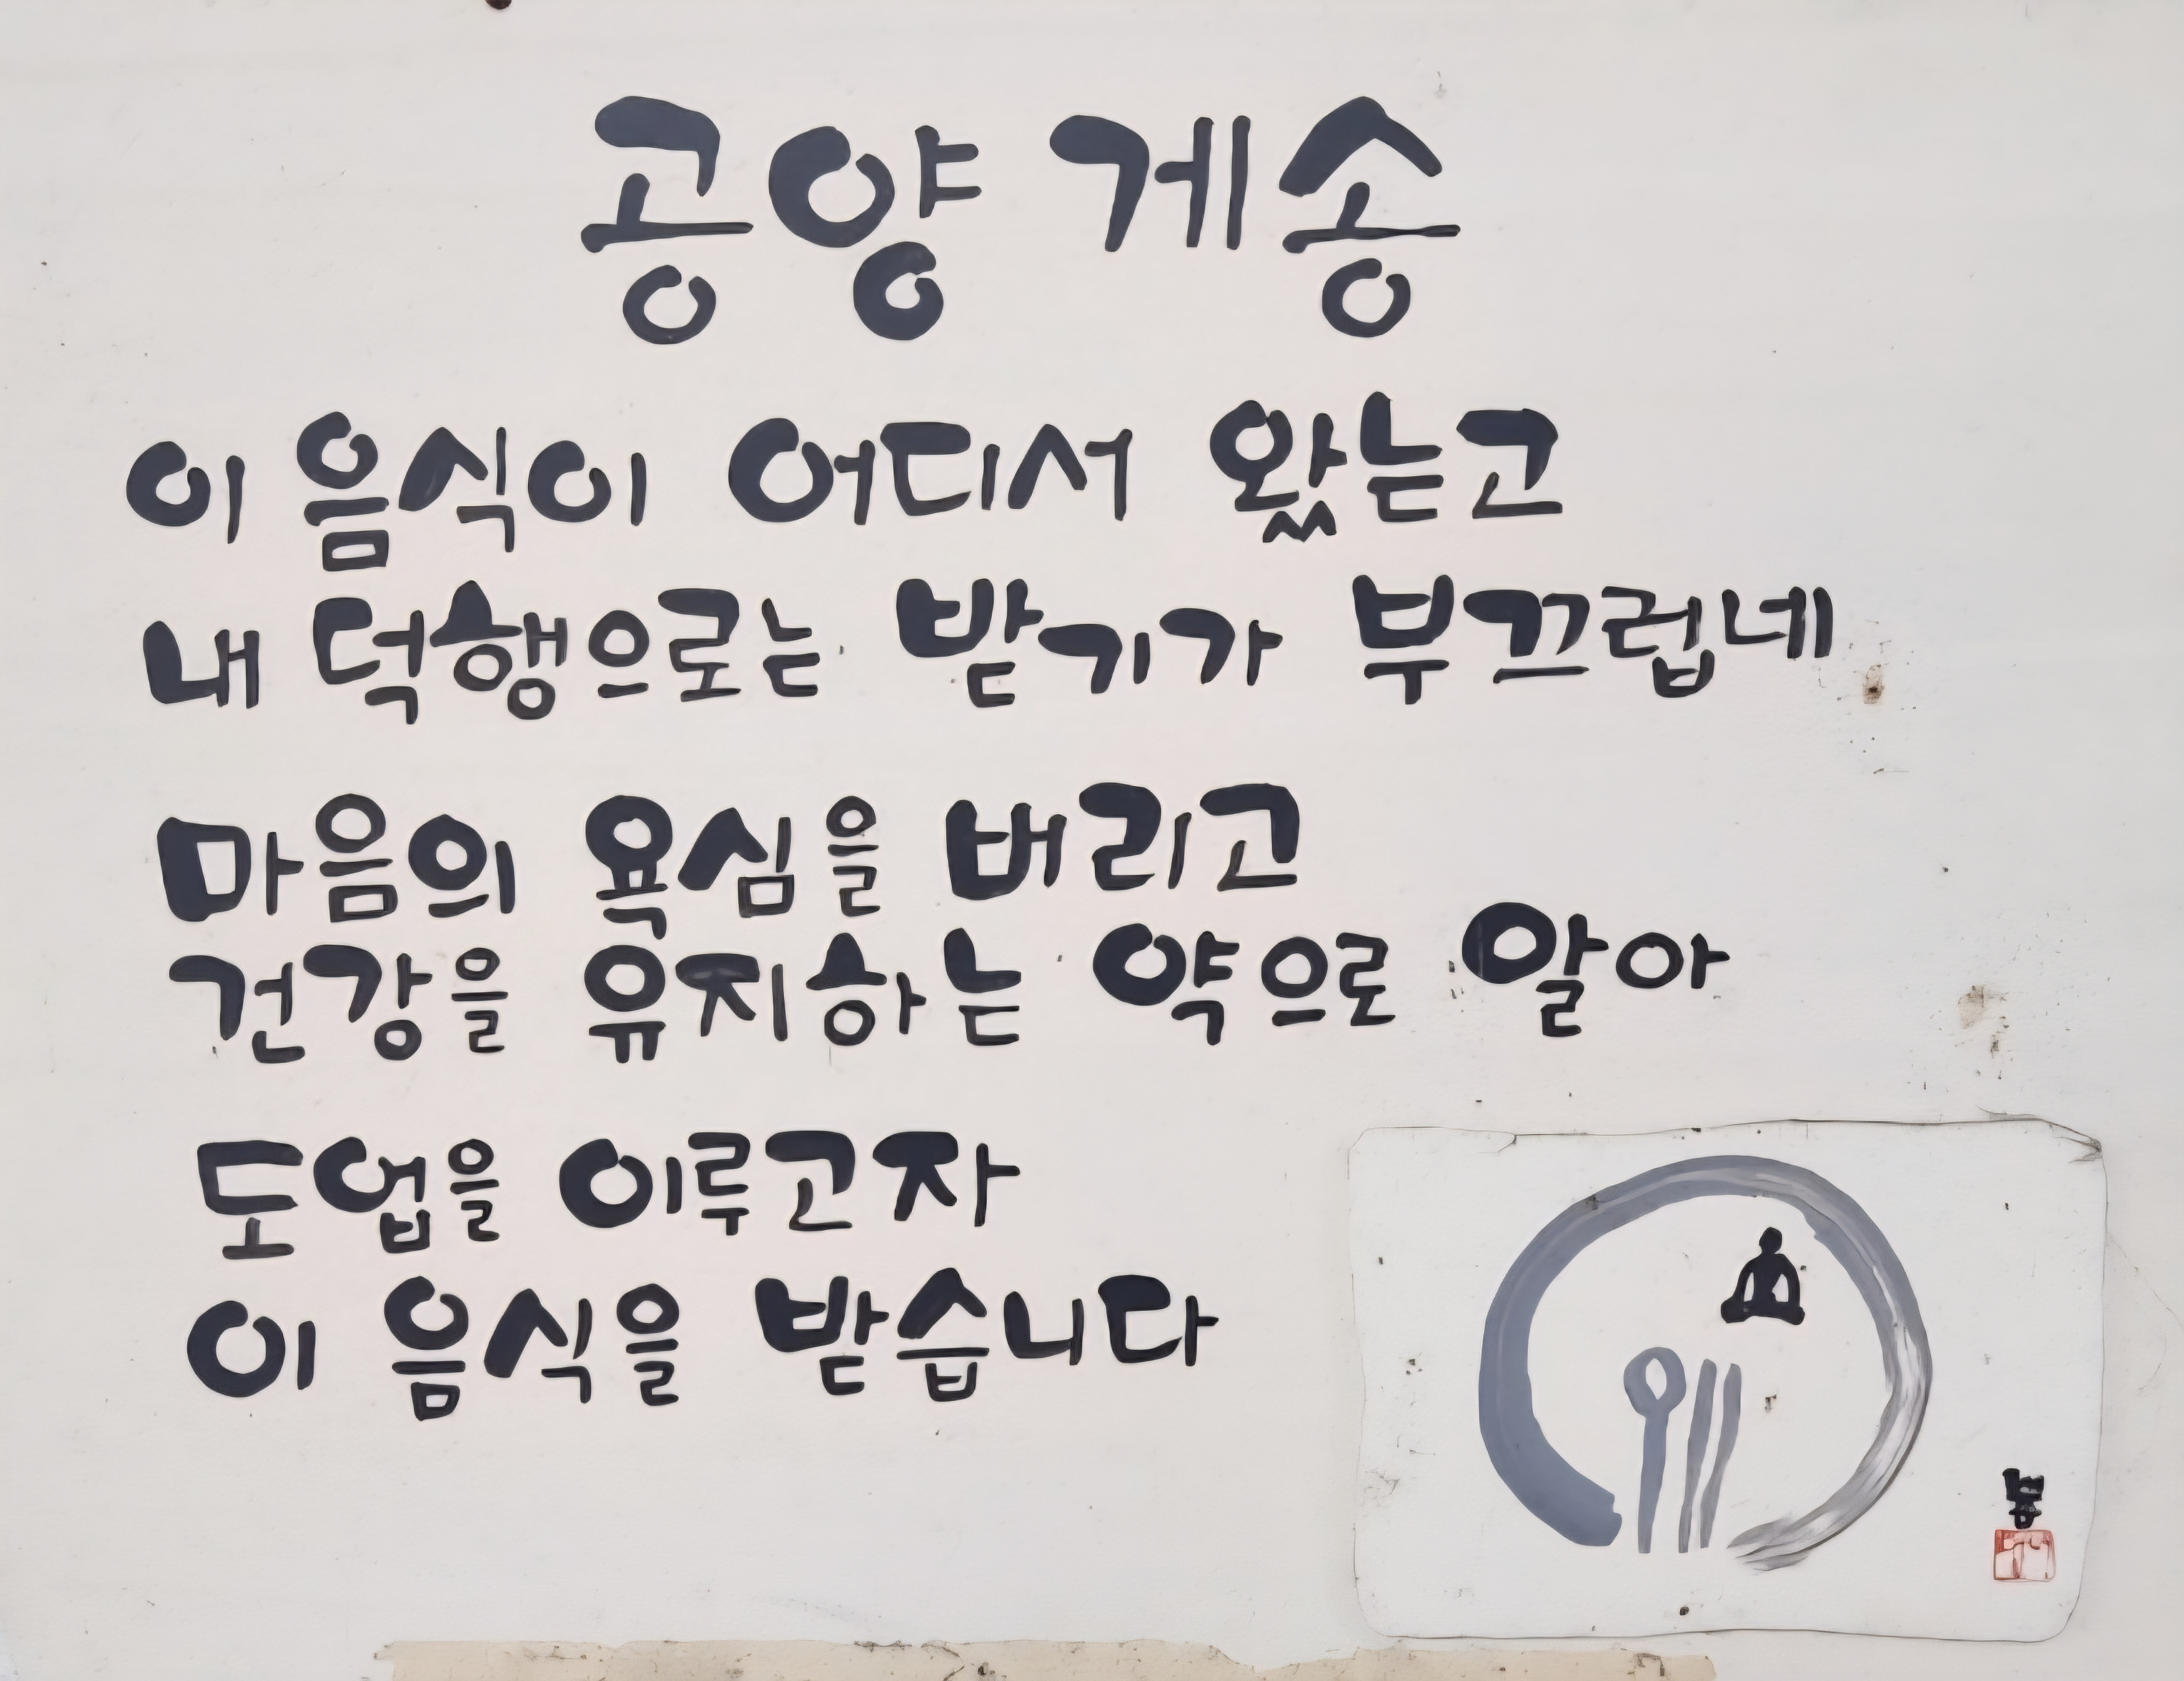 공양 게송
이 음식이 어디서 왔는고
내 덕행으로는 받기가 부끄럽네
마음의 욕심을 버리고
건강을 유지하는 약으로 알아
도업을 이루고자
이 음식을 받습니다